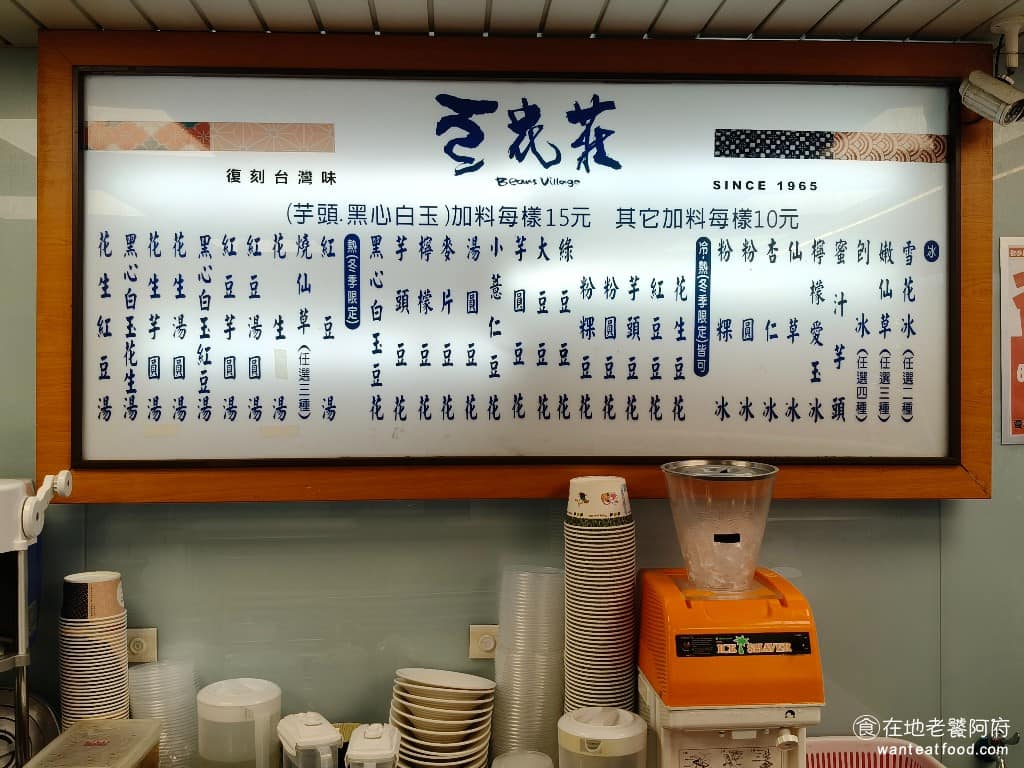 豆花莊
Beans Village
復刻台灣味
SINCE 1965
(芋頭.黑心白玉)加料每樣15元 其它加料每樣10元
冰
雪花冰(任選二種)
嫩仙草(任選三種)
刨冰(任選四種)
蜜汁芋頭
檸檬愛玉冰
仙草冰
杏仁冰
粉圓冰
粉粿冰
冷.熱(冬季限定)皆可
花生豆花
紅豆豆花
芋頭豆花
粉圓豆花
粉粿豆花
綠豆豆花
大豆豆花
芋圓豆花
小薏仁豆花
湯圓豆花
麥片豆花
檸檬豆花
芋頭豆花
黑心白玉豆花
熱(冬季限定)
紅豆湯
燒仙草(任選三種)
花生湯
紅豆湯圓湯
紅豆芋圓湯
黑心白玉紅豆湯
花生湯圓湯
花生芋圓湯
黑心白玉花生湯
花生紅豆湯
ICE SHAVER
食在地老饕阿府
wanteatfood.com